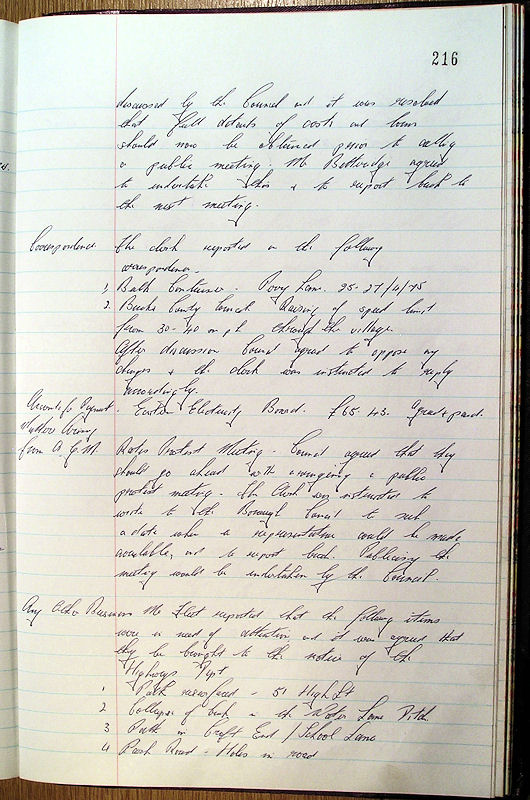 216
discussed by the Council and it was resolved
that full details of costs and loans
should now be obtained prior to calling
a public meeting. Mr Betteridge agreed
to undertake this & to report back to
the next meeting.
Correspondence. The clerk reported on the following
correspondence.
1, Bulk Container. Povy Lane. 25-27/4/75
2. Bucks County Council Raising of speed limit
from 30-40 m p h through the village.
After discussion Council agreed to oppose any
changes & the clerk was instructed to reply
accordingly.
Accounts for Payment. Eastern Electricity Board. £65.43. Agreed & paid.
Matters Arising
from A.G.M. Rates Protest Meeting. Council agreed that they
should go ahead with arranging a public
protest meeting. The Clerk was instructed to
write to the Borough Council to seek
a date when a representative could be made
available, and to report back. Publicising the
meeting would be undertaken by the Council.
Any Other Business Mr Fleet reported that the following items
were in need of attention and it was agreed that
they be brought to the notice of the
Highways Dept
1 Path resurfaced - 51 High St
2 Collapse of bank in the Water Lane Ditch
3 Path in Croft End / School Lane
4 Road - Holes in road